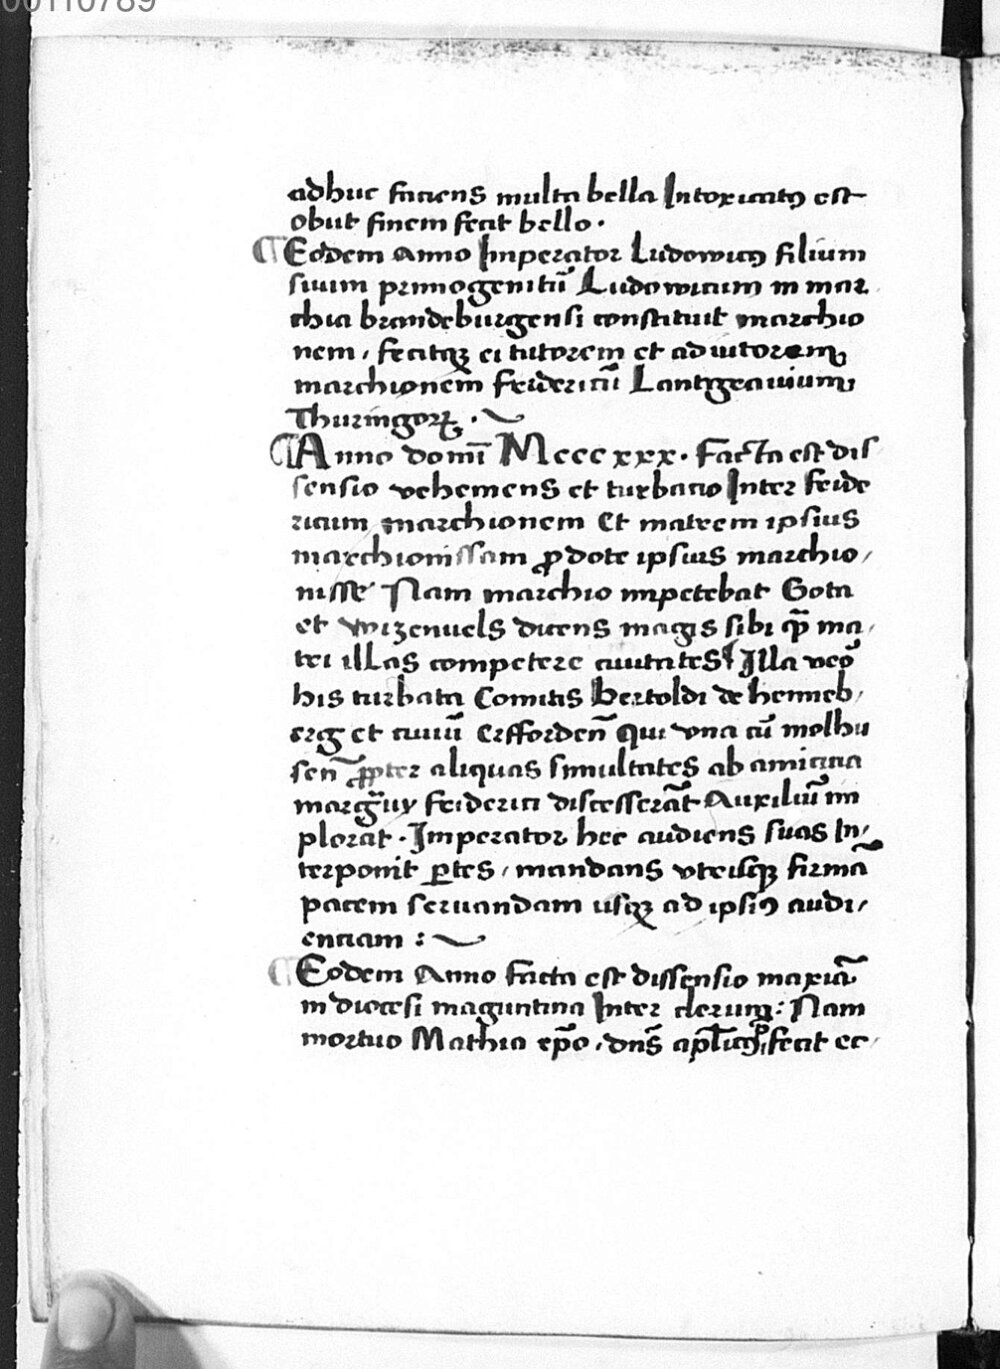 00110789
adhuc faciens multa bella Intoxicatꝰ est
obiit finem fecit bello ·
¶ Eodem Anno Imperator Ludowicꝰ filium
suum primogenitū Ludowicum in mar
chia brandeburgensi constituit marchio
nem, fecitqꝫ ei tutorem et adiutorem
marchionem Fridericū Lantgrauium
Thuringorꝝ ·
¶ Anno domī Mcccxxx · Facta est dis
sensio vehemens et turbacio Inter Fride
ricum marchionem Et matrem ipsius
marchionissam ꝓ dote ipsius marchio/
nisse Nam marchio impetebat Gota
et Wizenuels dicens magis sibi qͣ̄ ma/
tri illas competere ciuitates Illa veō
his turbata Comitis Bertoldi de henneb/
erg et ciuiū Erffordeñ Qui vna cū molhu
señ ꝓpter aliquas simultates ab amicicia
margͣuy friderici discesserāt Auxiliū im
plorat · Imperator hec audiens suas In/
terponit ꝑtes, mandans vtrisqꝫ firmā
pacem seruandam usqꝫ ad ipsiꝰ audi/
enciam :
¶ Eodem Anno Facta est dissensio maxīa
in diocesi maguntina Inter clerum : Nam
mortuo Mathia epō, dñs apl̄icꝰ fecit ec/